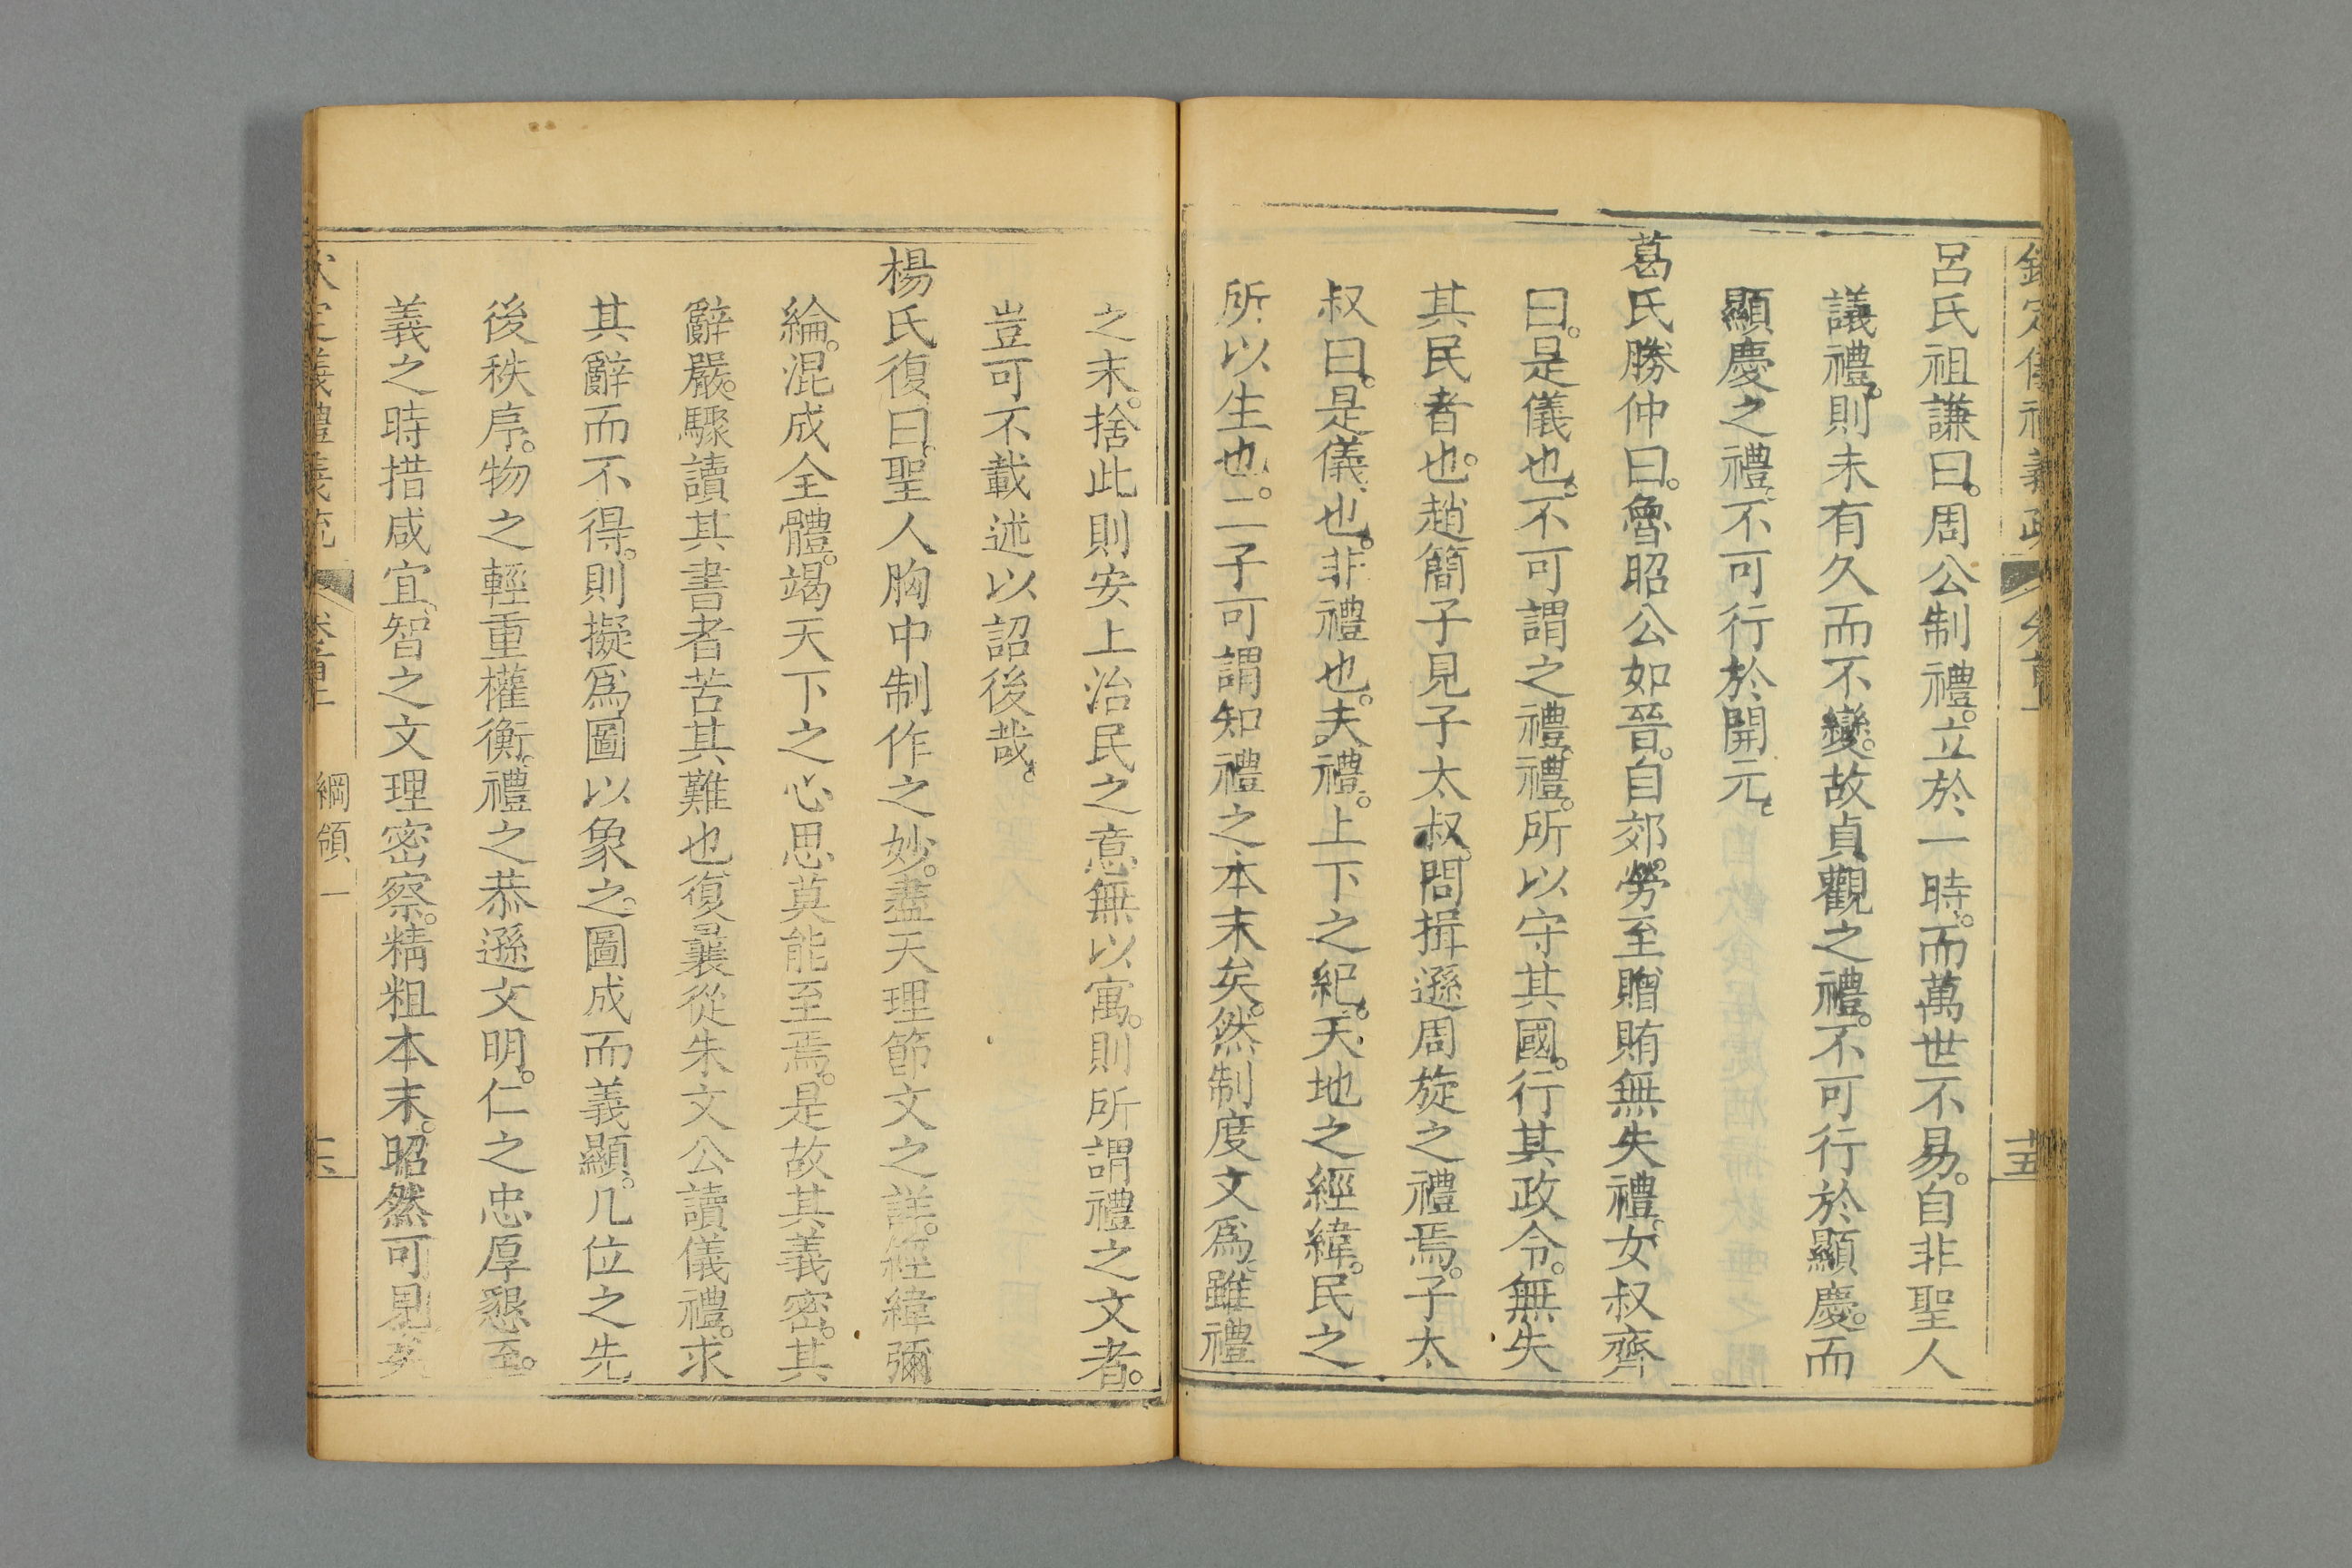 欽定儀禮義疏 卷首上 十五
呂氏祖謙曰。周公制禮。立於一時。而萬世不易。自非聖人
議禮。則未有久而不變。故貞觀之禮。不可行於顯慶。而
顯慶之禮。不可行於開元。
葛氏勝仲曰。魯昭公如晉。自郊勞至贈賄無失禮。女叔齊
曰。是儀也。不可謂之禮。禮。所以守其國。行其政令。無失
其民者也。趙簡子見子太叔。問揖遜周旋之禮焉。子太
叔曰。是儀也。非禮也。夫禮。上下之紀。天地之經緯。民之
所以生也。二子可謂知禮之本末矣。然制度文爲。雖禮
之末。捨此則安上治民之意無以寓。則所謂禮之文者。
豈可不載述以詔後哉。
楊氏復曰。聖人胸中制作之妙。盡天理節文之詳。經緯彌
綸。混成全體。竭天下之心思莫能至焉。是故其義密。其
辭嚴。驟讀其書者苦其難也復曩從朱文公讀儀禮。求
其辭而不得。則擬爲圖以象之。圖成而義顯。凡位之先
後秩序。物之輕重權衡。禮之恭遜文明。仁之忠厚懇至。
義之時措咸宜。智之文理密察。精粗本末。昭然可見矣
欽定儀禮義疏 卷首上 綱領一